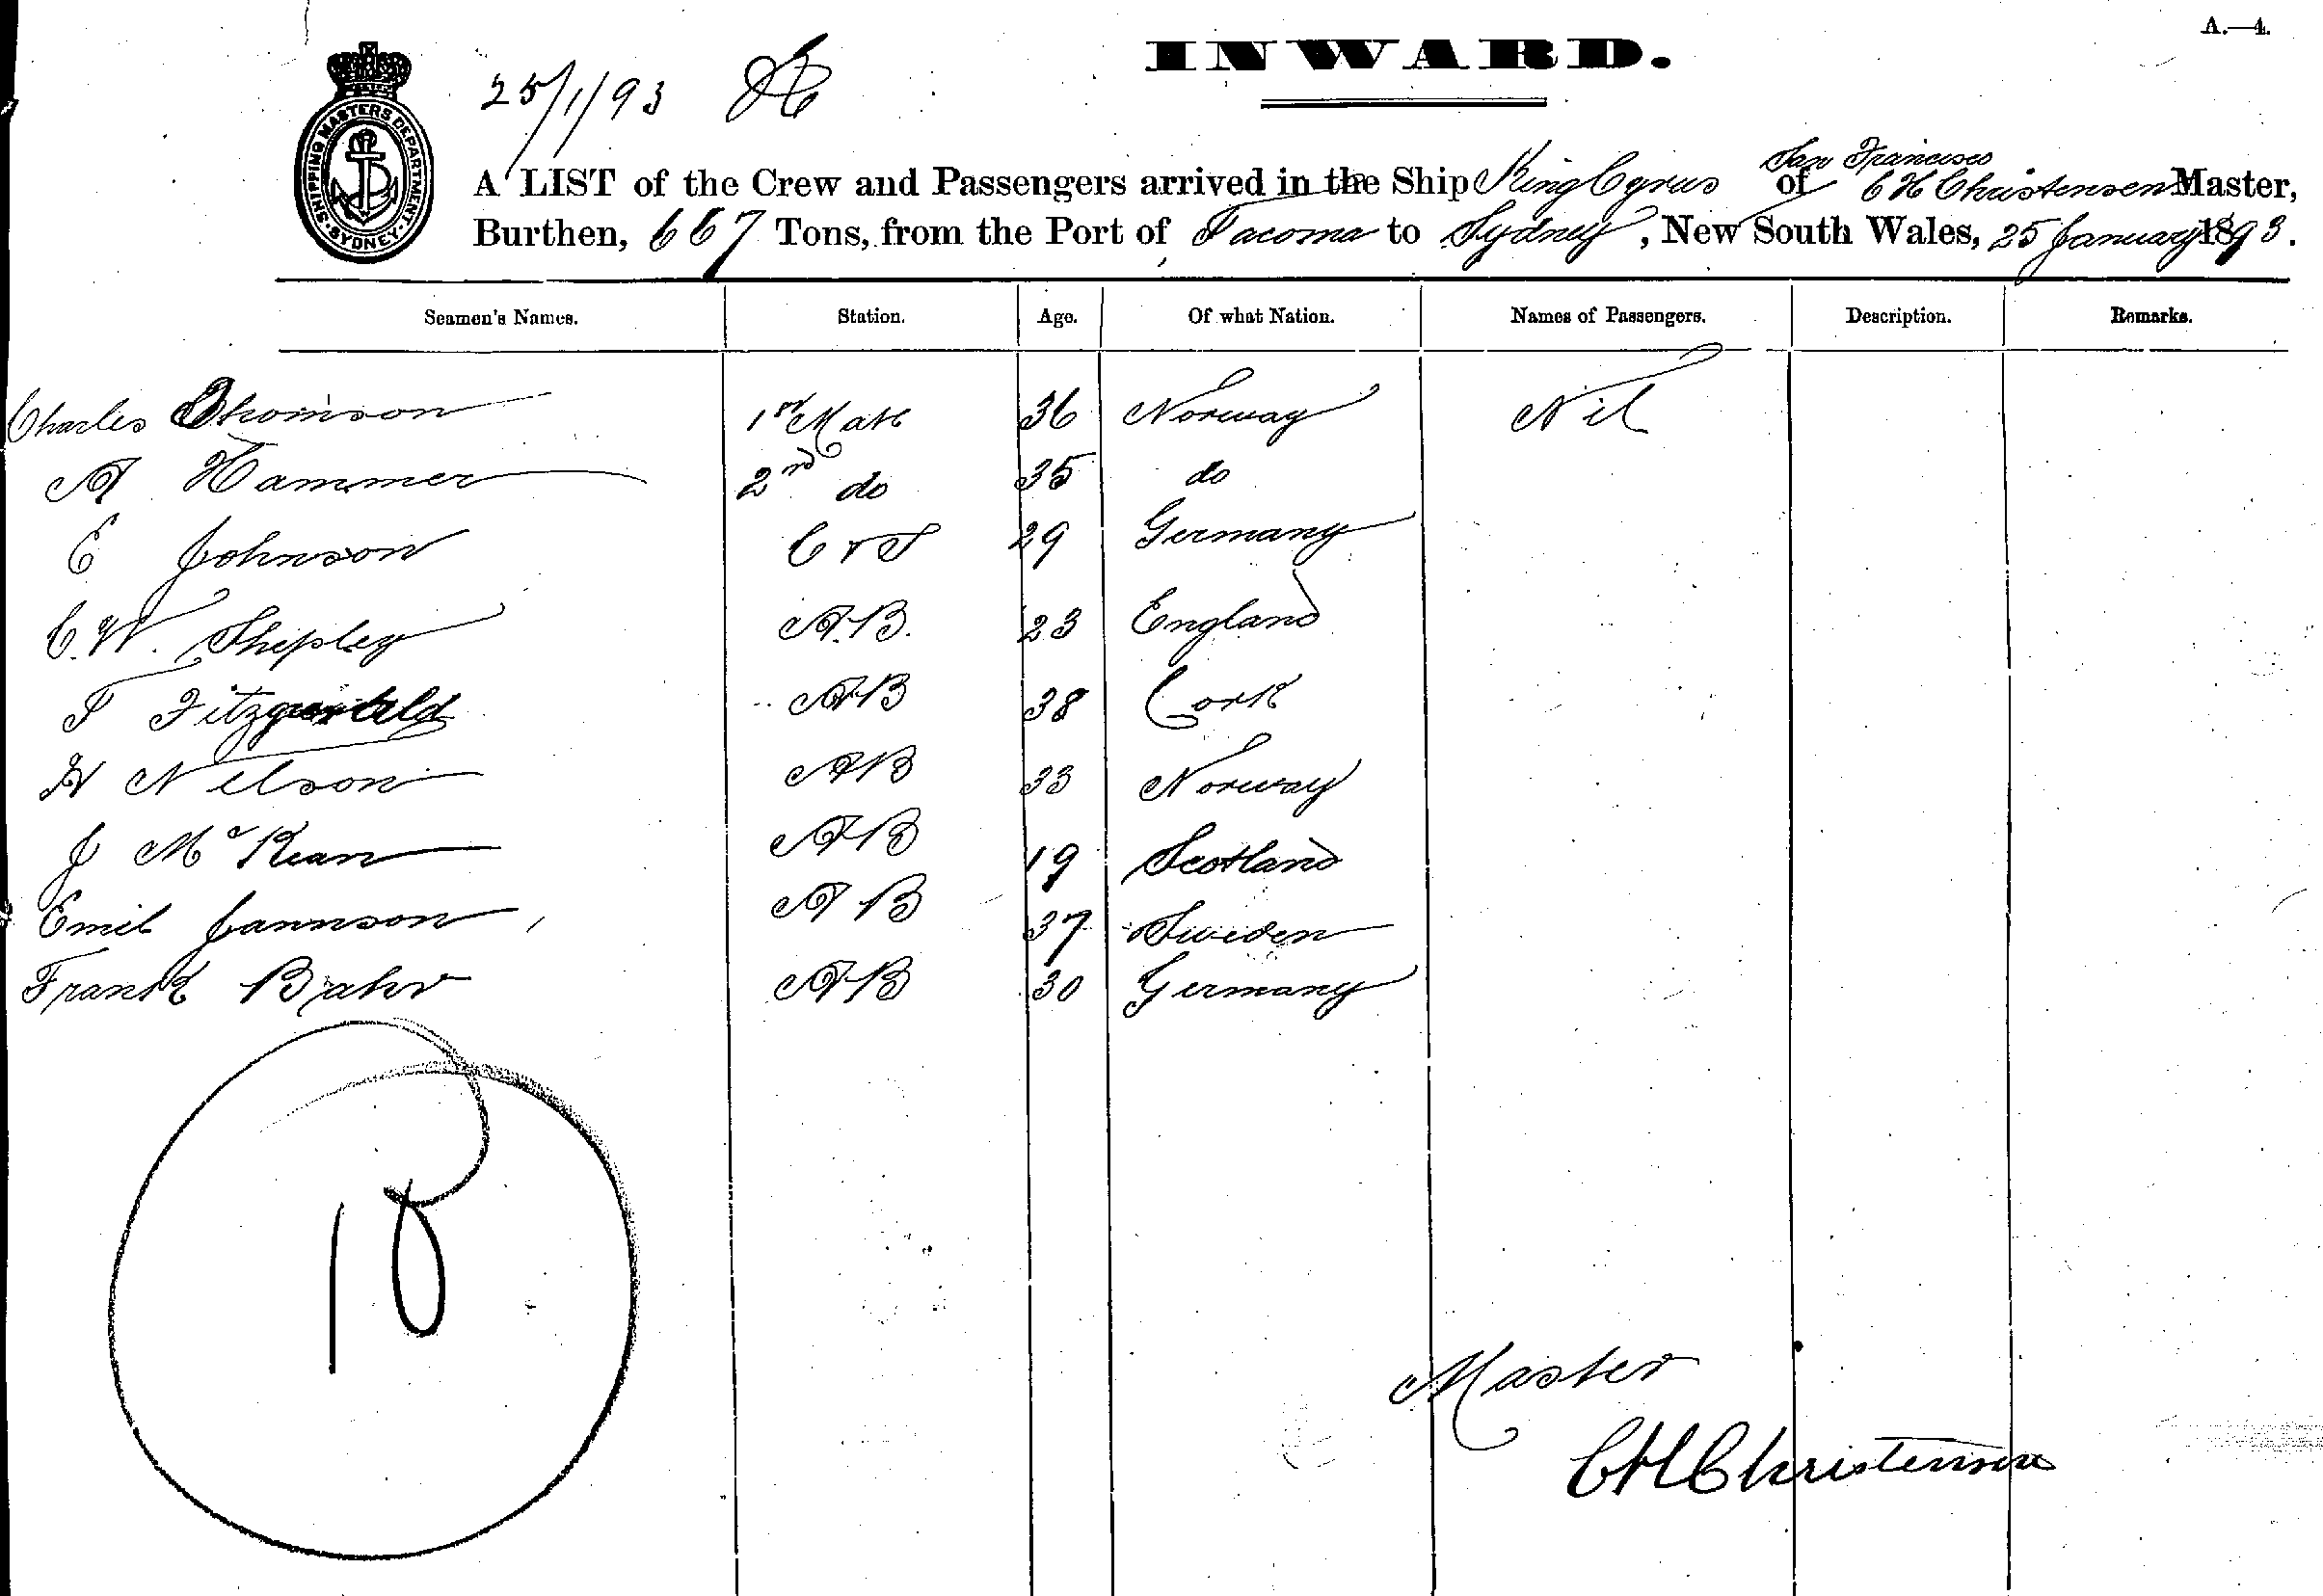 A.—4.
INWARD.
25/1/93
SHIPPING MASTERS DEPARTMENT · SYDNEY ·
San Francisco
A LIST of the Crew and Passengers arrived in the Ship King Cyrus of C H Christensen Master,
Burthen, 667 Tons, from the Port of Tacoma to Sydney, New South Wales, 25 January 1893.
Seamen's Names. Station. Age. Of what Nation. Names of Passengers. Description. Remarks.
Charles Thomson 1st Mate 36 Norway Nil
A Hammer 2nd do 35 do
E Johnson C & S 29 Germany
C. W. Shipley A.B. 23 England
T Fitzgerald AB 38 Cork
H Nelson AB 33 Norway
J McKean AB 19 Scotland
Emil Jannson AB 37 Sweden
Frank Bahr AB 30 Germany
10
Master
C H Christensen